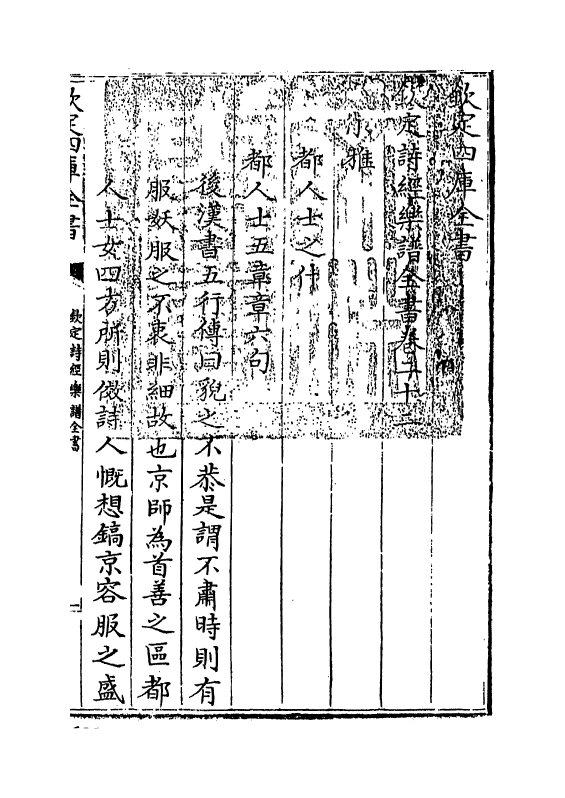 欽定四庫全書
欽定詩經樂譜全書卷二十二
小雅
都人士之什
都人士五章章六句
後漢書五行傳曰貌之不恭是謂不肅時則有
服妖服之不衷非細故也京師為首善之區都
人士女四方所則傚詩人慨想鎬京容服之盛
欽定四庫全書
欽定詩經樂譜全書